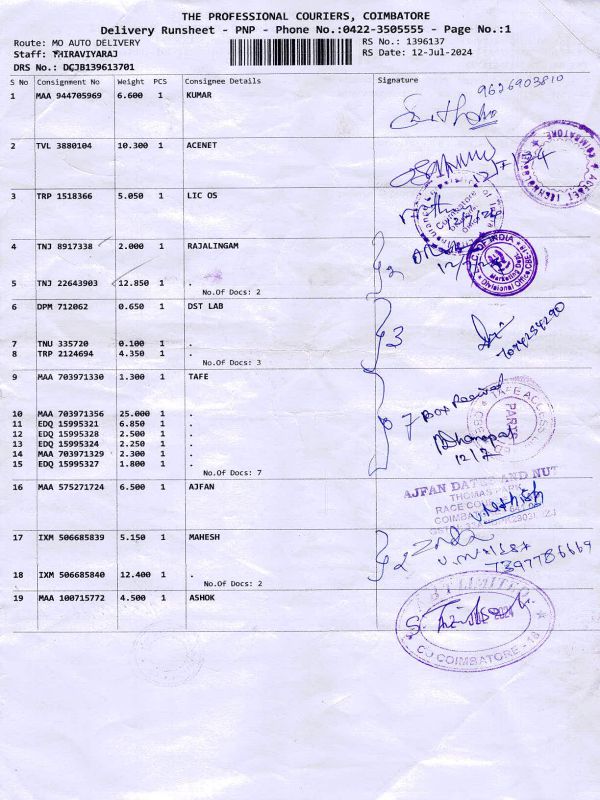 THE PROFESSIONAL COURIERS, COIMBATORE
Delivery Runsheet - PNP - Phone No.:0422-3505555 - Page No.:1
Route: MO AUTO DELIVERY
RS No.: 1396137
Staff: THIRAVIYARAJ
RS Date: 12-Jul-2024
DRS No.: DCJB139613701
S No Consignment No Weight PCS Consignee Details Signature
1 MAA 944705969 6.600 1 KUMAR
9626903810
2 TVL 3880104 10.300 1 ACENET
COIMBATORE
ACENET TECHNOLO
3 TRP 1518366 5.050 1 LIC OS
4 TNJ 8917338 2.000 1 RAJALINGAM
OF INDIA
Marketing Dept.
Divisional Office CBE-18
5 TNJ 22643903 12.850 1 .
No.Of Docs: 2
2
6 DPM 712062 0.650 1 DST LAB
3
7094254290
7 TNU 335720 0.100 1 .
8 TRP 2124694 4.350 1 .
No.Of Docs: 3
9 MAA 703971330 1.300 1 TAFE
TAFE ACCESS
PARTS
7 Box Received
10 MAA 703971356 25.000 1 .
11 EDQ 15995321 6.850 1 .
12 EDQ 15995328 2.500 1 .
13 EDQ 15995324 2.250 1 .
14 MAA 703971329 2.300 1 .
15 EDQ 15995327 1.800 1 .
No.Of Docs: 7
Dhanapat
12/7
16 MAA 575271724 6.500 1 AJFAN
AJFAN DATES AND NUT
THOMAS PARK
RACE CO
COIMBAT
17 IXM 506685839 5.150 1 MAHESH
2
7397786669
18 IXM 506685840 12.400 1 .
No.Of Docs: 2
19 MAA 100715772 4.500 1 ASHOK
LIMITED
COIMBATORE - 18